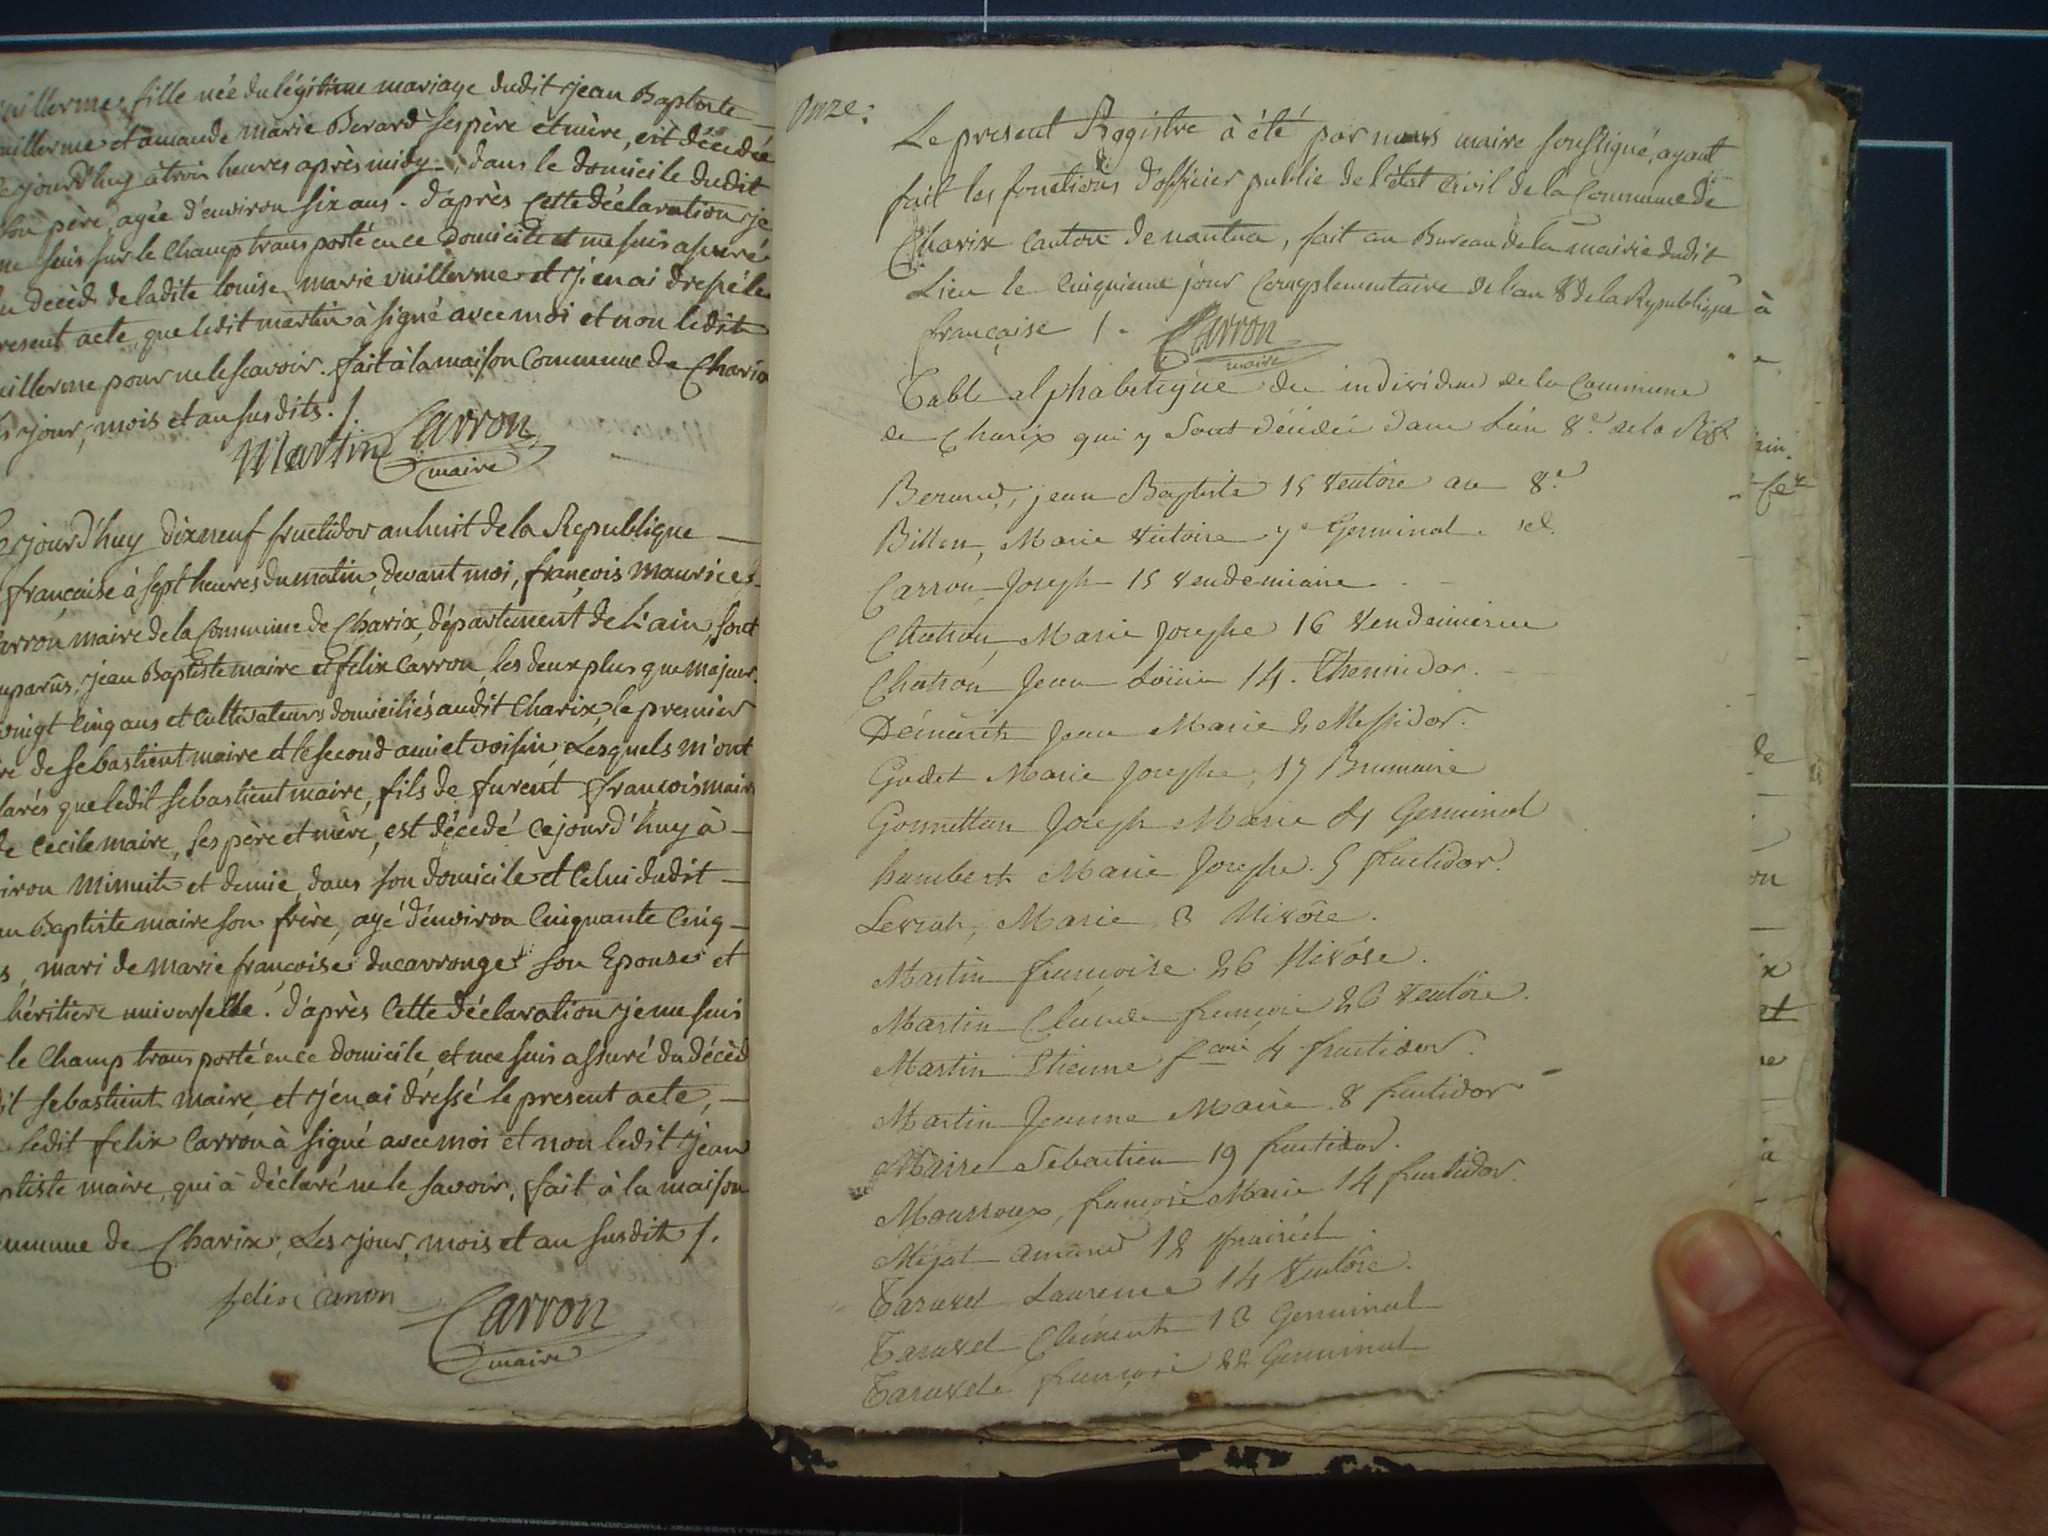 fille née du légitime mariage dudit jean Baptiste
et amande marie Berard ses père et mère, est décédée
jourd'huy à trois heures après midy, dans le domicile dudit
son père, agée d'environ six ans. d'après cette déclaration je
me suis sur le champ transporté en ce domicile et me suis assuré
décéd de ladite louise marie vuillerme et j'en ai dressé le
present acte, que ledit martin à signé avec moi et non ledit
pour ne le scavoir. fait à la maison Commune de Charix
jour, mois et an susdits ./.
Martin Carron
maire
jourd'huy dixneuf fructidor an huit de la Republique
française à sept heures du matin, devant moi, françois maurice
Carron maire de la Commune de Charix, département de l'ain, sont
jean Baptiste maire et felix Carron, les deux plus que majeur
vingt cinq ans et cultivateurs domiciliés audit Charix, le premier
de sebastient maire et le second ami et voisin, Lesquels m'ont
que ledit sebastient maire, fils de furent françois maire
de Cecile maire, ses père et mère, est décedé cejourd'huy à
minuit et demie, dans son domicile et celui dudit
Baptiste maire son frère, agé d'environ Cinquante Cinq
mari de marie françoise ducarrouge son Epouse et
héritiere universelle. d'après cette déclaration je me suis
le champ transporté en ce domicile, et me suis assuré du décèd
sebastient maire, et j'en ai dressé le present acte,
ledit felix Carron à signé avec moi et non ledit jean
maire, qui à déclaré ne le savoir, fait à la maison
de Charix, Les jour, mois et an susdits ./.
felix Carron
Carron
maire
onze:
Le present Registre à été par nous maire soussigné, ayant
fait les fonctions d'officier public de l'état Civil de la Commune de
Charix Canton de nantua, fait au Bureau de la mairie dudit
Lieu le Cinquieme jour Complementaire de l'an 8 de la Republique
française ./. Carron
maire
Table alphabetique de individus de la Commune
de Charix qui y sont décédés dans l'an 8e de la
jean Baptiste 15 Ventose an 8e
Marie Victoire 7e Germinal id.
Carron Joseph 15 vendemiaire
Marie Josephe 16 Vendemiaire
Chatron Jean 14 Thermidor.
Jean Marie 2 Messidor.
Godet Marie Josephe, 17 Brumaire
Joseph Marie Germinal
humbert Marie Josephe. 5 fructidor.
Marie 3 Nivôse.
Martin françoise 26 Nivôse.
Martin Claude françois 26 Ventôse.
Martin Etienne 4 fructidor.
Martin Jeanne Marie 8 fructidor
Maire Sébastien 19 fructidor.
françois Marie 14 fructidor.
Mijat amand 12
Taravel Laurence 14 Ventôse.
Taravel Clément 13 Germinal
Taravel françois 22 Germinal